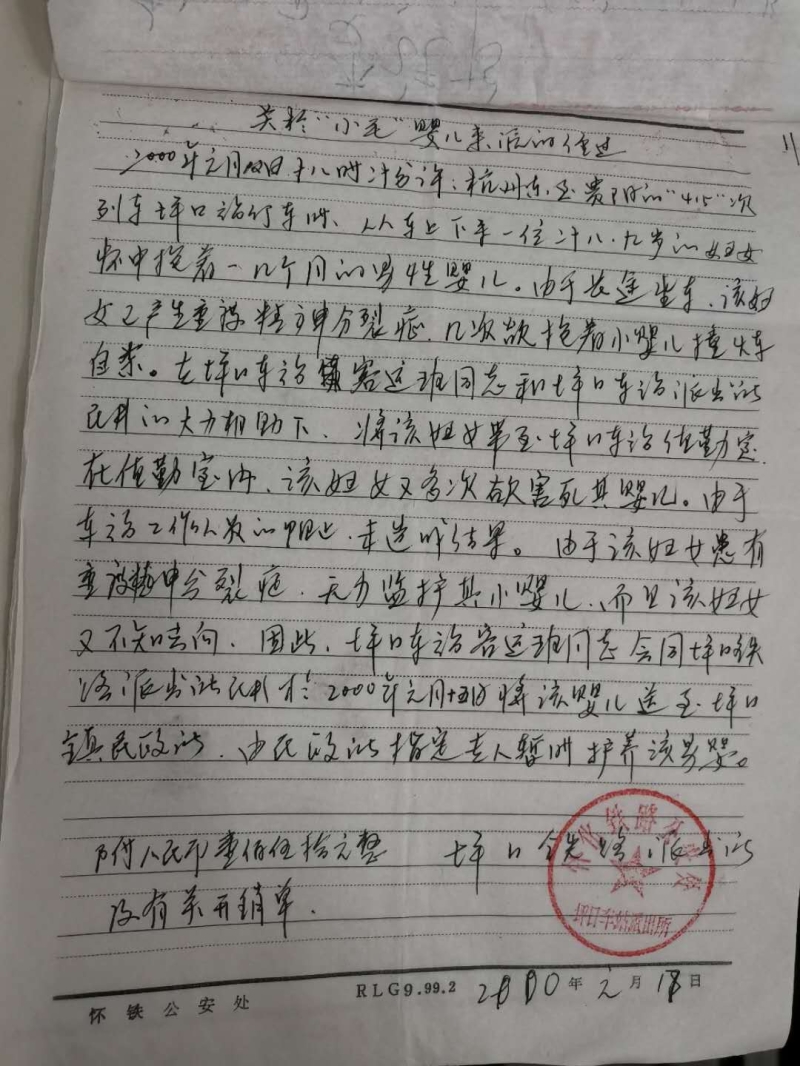 关於“小毛”婴儿来源的经过
2000年元月日十八时二十分许：杭州东至贵阳的“415”次
列车坪口站停车时、从车上下来一位二十八、九岁的妇女
怀中抱着一几个月的男性婴儿。由于长途坐车、该妇
女已产生重被精神分裂症、几次欲抱着小婴儿撞火车
自杀。在坪口车站客运班同志和坪口车站派出所
民井的大力相助下、将该妇女带至坪口车站值勤室.
在值勤室内、该妇女又多次欲害死其婴儿。由于
车站工作人员的阻止.未造成结果。由于该妇女患有
重被精神分裂症、无力监护其小婴儿、而且该妇女
又不知去向、因此、坪口车站客运班同志会同坪口铁
路派出所民井於2000年元月十五日将该婴儿送至坪口
镇民政所、由民政所指定专人暂时护养该男婴。
付人民币壹佰伍拾元整 坪口铁路派出所
及有关开销单.
坪口车站派出所
怀铁公安处 RLG9.99.2 2000年元月18日